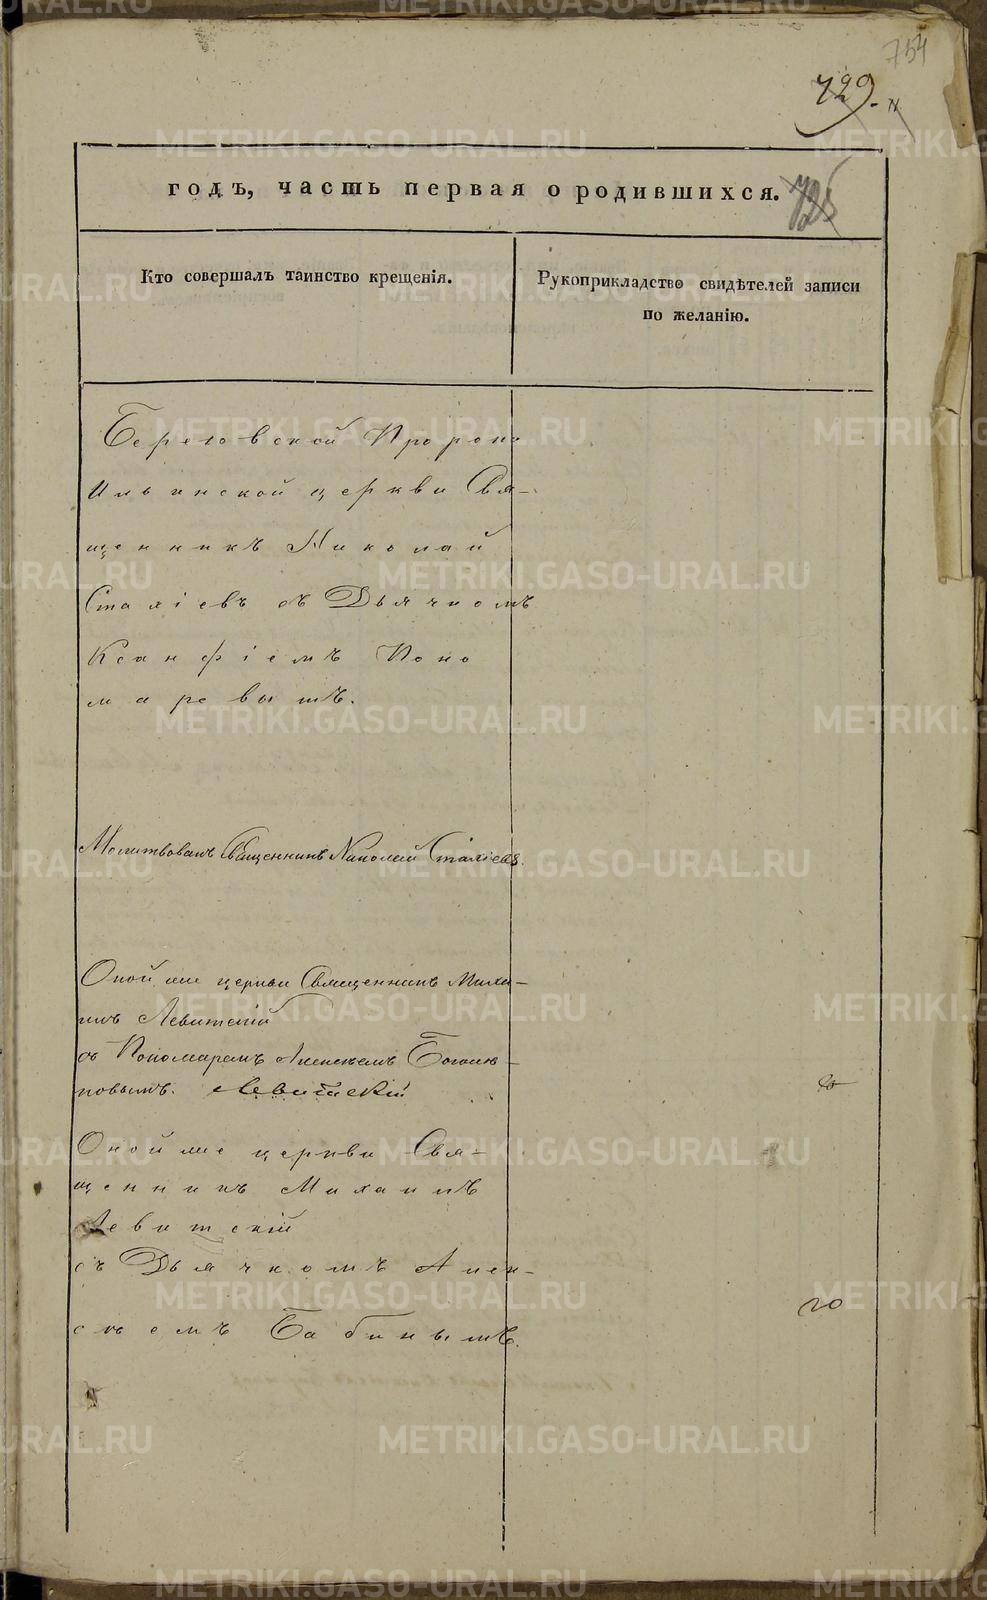 754
729.
годъ, часть первая о родившихся.
725
Кто совершалъ таинство крещенія.
Рукоприкладство свидѣтелей записи
по желанію.
Березовской Пророко
Ильинской церкви Свя-
щенникъ Николай
Стахіевъ съ Дьячкомъ
Ксанфіемъ Поно
маревымъ.
Молитвовалъ Священникъ Николай Стахіевъ.
Оной же церкви Священникъ Миха-
илъ Левитскій
съ Пономаремъ Алексѣемъ Боголю-
повымъ. Левитскій
Оной же церкви Свя-
щенникъ Михаилъ
Левитскій
съ Дьячкомъ Алек-
сѣемъ Бабинымъ.
METRIKI.GASO-URAL.RU